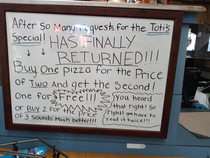 After So Many requests for the Toti's
Special!! HAS FINALLY
RETURNED!!!
Buy One pizza for the Price
of Two and get the Second!
One for free!!!
or BUY 2 for the Price
of 3 sounds Much better!!!
You heard
that right! So
right you have to
read it twice!!!